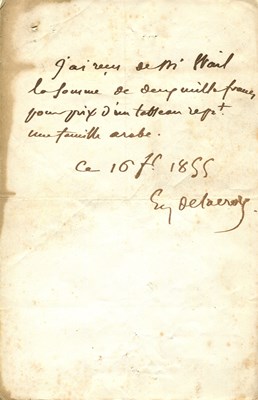 J'ai reçu de Mr Weil
la somme de deux mille francs
pour prix d'un tableau rept
une famille arabe.
ce 16 fc 1855
Eug Delacroix